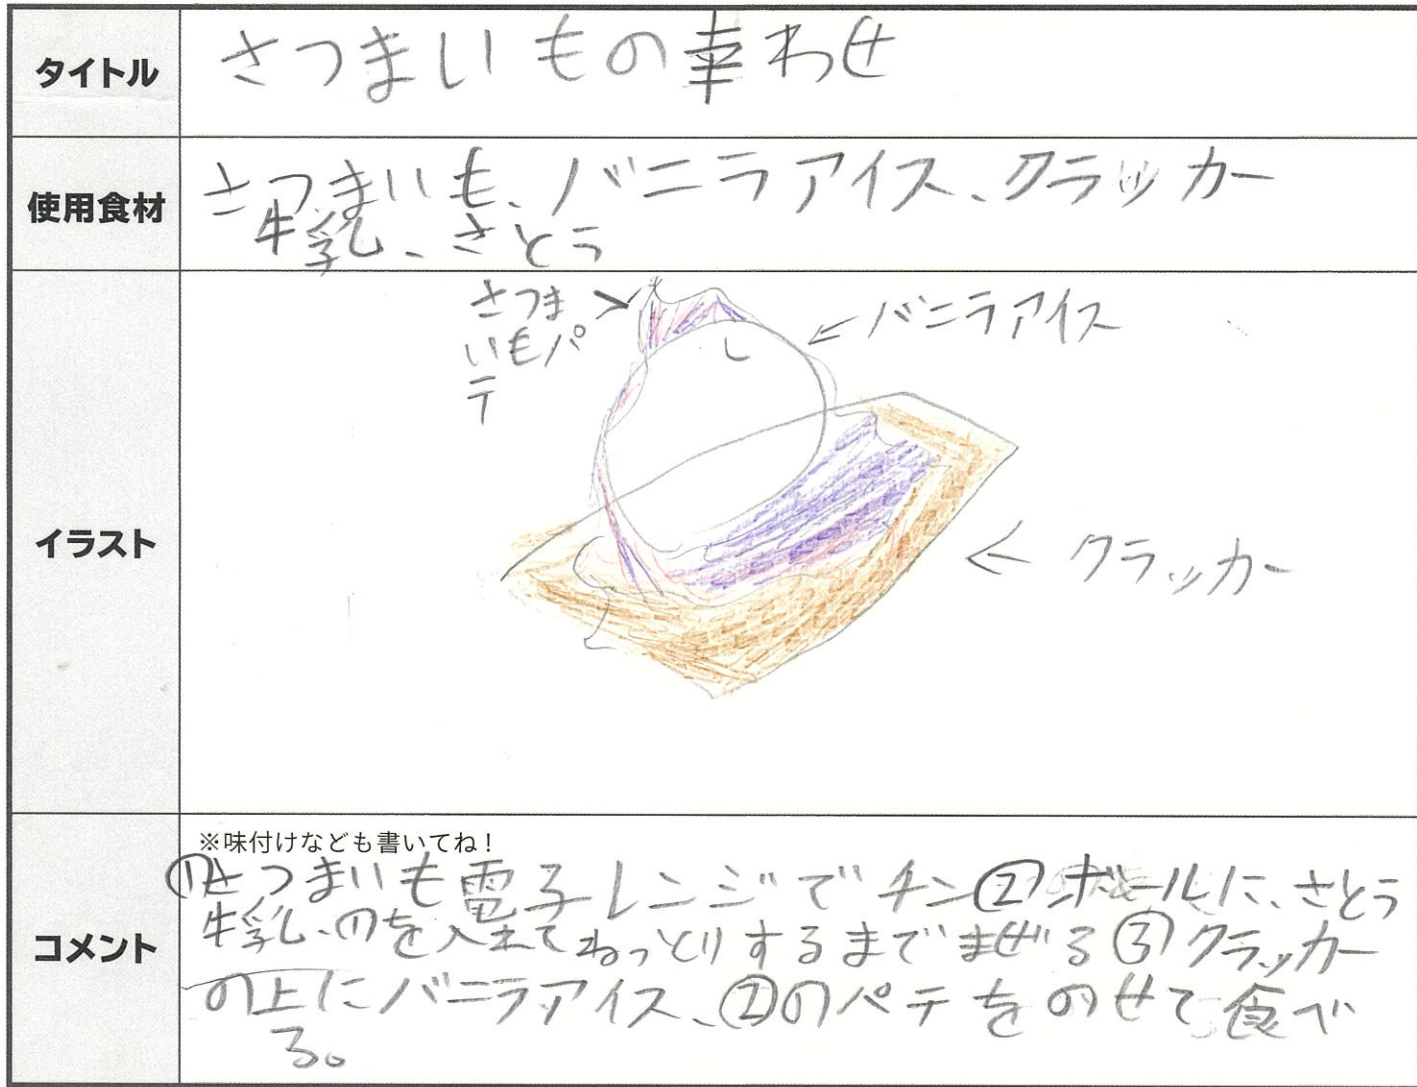 タイトル
さつまいもの幸わせ
使用食材
さつまいも、バニラアイス、クラッカー
牛乳、さとう
イラスト
さつま
いもパ
テ
バニラアイス
クラッカー
コメント
※味付けなども書いてね!
①さつまいも電子レンジでチン②ボールに、さとう
牛乳、①を入れてねっとりするまでまぜる③クラッカー
の上にバニラアイス、②のパテをのせて食べ
る。